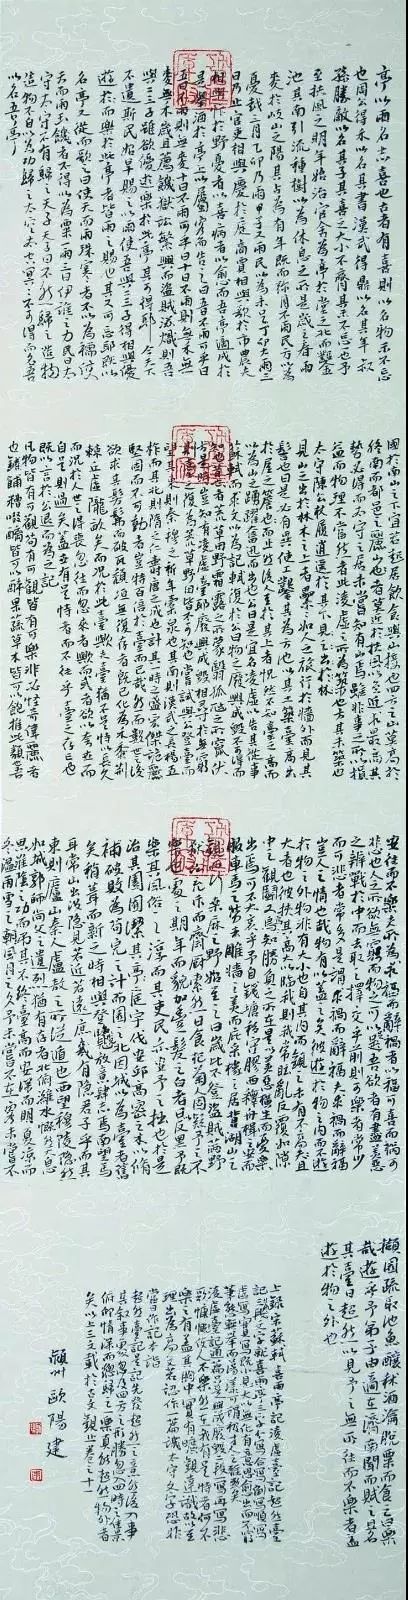 亭以雨名志喜也古者有喜則以名物示不忘
也周公得禾以名其書漢武得鼎以名其年叔
孫勝敵以名其子其喜之大小不齊其示不忘一也予
至扶風之明年始治官舍為亭於堂之北而鑿
池其南引流種樹以為休息之所是歲之春雨
麥於岐山之陽其占為有年既而彌月不雨民方以為
憂越三月乙卯乃雨甲子又雨民以為未足丁卯大雨三
日乃止官吏相與慶於庭商賈相與歌於市農夫
相與忭於野憂者以喜病者以愈而吾亭適成於
是舉酒於亭上以屬客而告之曰五日不雨可乎曰
五日不雨則無麥十日不雨可乎曰十日不雨則無禾無
麥無禾歲且薦饑獄訟繁興而盜賊滋熾則吾
與二三子雖欲優游以樂於此亭其可得耶今天
不遺斯民始旱而賜之以雨使吾與二三子得相與優
游而樂於此亭者皆雨之賜也其又可忘耶既以
名亭又從而歌之曰使天而雨珠寒者不得以為襦使
天而雨玉饑者不得以為粟一雨三日伊誰之力民曰太
守太守不有歸之天子天子曰不然歸之造物
造物不自以為功歸之太空太空冥冥不可得而名吾
以名吾亭
國於南山之下宜若起居飲食與山接也四方之山莫高於
終南而都邑之麗山者莫近於扶風以至近求最高其
勢必得而太守之居未嘗知有山焉雖非事之所以損
益而物理有不當然者此凌虛之所為築也方其未築也
太守陳公杖履逍遙於其下見山之出於林
木之上者纍纍如人之旅行於牆外而見其
髻也曰是必有異使工鑿其前為方池以其土築臺高出
於屋之簷而止然後人之至於其上者恍然不知臺之高而
以為山之踴躍奮迅而出也公曰是宜名凌虛以告其從事
蘇軾而求文以為記軾復於公曰物之廢興成毀不可得而
知也昔者荒草野田霜露之所蒙翳狐虺之所竄伏
方是時豈知有凌虛臺耶廢興成毀相尋於無窮
則臺之復為荒草野田皆不可知也嘗試與公登臺而
望其東則秦穆之祈年橐泉也其南則漢武之長楊五
柞而其北則隋之仁壽唐之九成也計其一時之盛宏傑詭麗
堅固而不可動者豈特百倍於臺而已哉然而數世之後
欲求其髣髴而破瓦頹垣無復存者既已化為禾黍荊
棘丘墟隴畝矣而況於此臺歟夫臺猶不足恃以長久
而況於人事之得喪忽往而忽來者歟而或者欲以夸世而
自足則過矣蓋世有足恃者而不在乎臺之存亡也
既以言於公退而為之記
凡物皆有可觀苟有可觀皆有可樂非必怪奇偉麗者
也餔糟啜醨皆可以醉果蔬草木皆可以飽推此類吾
安往而不樂夫所為求福而辭禍者以福可喜而禍可
悲也人之所欲無窮而物之可以足吾欲者有盡美惡
之辨戰於中而去取之擇交乎前則可樂者常少
而可悲者常多是謂求禍而辭福夫求禍而辭福
豈人之情也哉物有以蓋之矣彼遊於物之內而不遊
於物之外物非有大小也自其內而觀之未有不高且
大者也彼挾其高大以臨我則我常眩亂反覆如隙
中之觀鬭又烏知勝負之所在是以美惡橫生而憂樂
出焉可不大哀乎予自錢塘移守膠西釋舟楫之安而
服車馬之勞去雕牆之美而庇采椽之居背湖山之
觀而行桑麻之野始至之日歲比不登盜賊滿野
獄訟充斥而齋廚索然日食杞菊人固疑予之不
樂也處之期年而貌加豐髮之白者日以反黑予既
樂其風俗之淳而其吏民亦安予之拙也於是
治其園囿潔其庭宇伐安邱高密之木以修
補破敗為苟完之計而園之北因城以為臺者舊
矣稍葺而新之時相與登覽放意肆志焉南望馬
耳常山出沒隱見若近若遠庶幾有隱君子乎而其
東則廬山秦人盧敖之所從遁也西望穆陵隱然
如城郭師尚父之遺烈猶有存者北俯濰水慨然大息
思淮陰之功而弔其不終臺高而安深而明夏涼而
冬溫雨雪之朝風月之夕予未嘗不在客未嘗不從
擷園蔬取池魚釀秫酒瀹脫粟而食之曰樂
哉遊乎予弟子由適在濟南聞而賦之且名
其臺曰超然以見予之無所往而不樂者蓋
遊於物之外也
潁州歐陽建